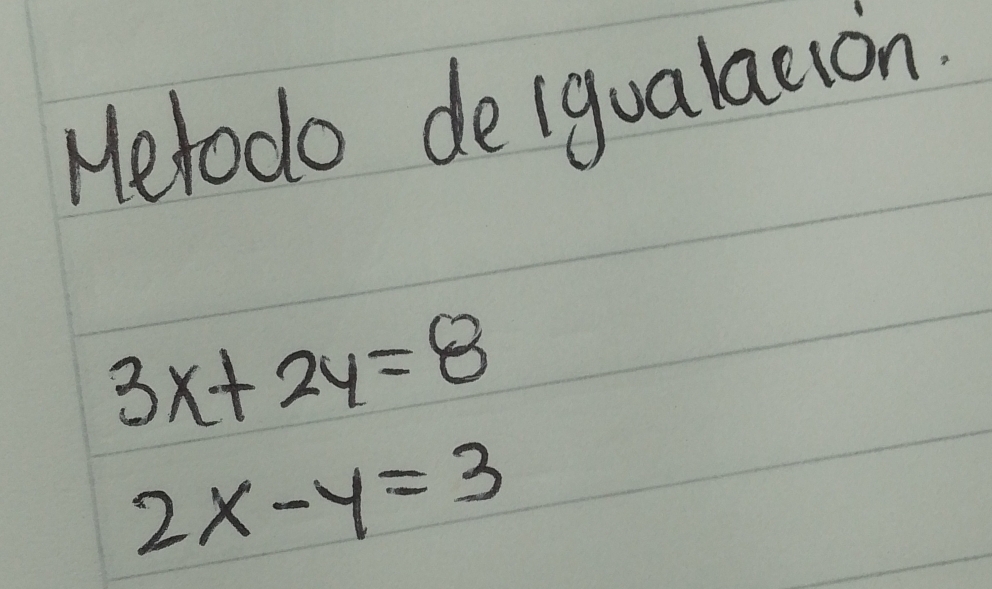 Metodo de igualación.
3x+2y=8
2x-y=3